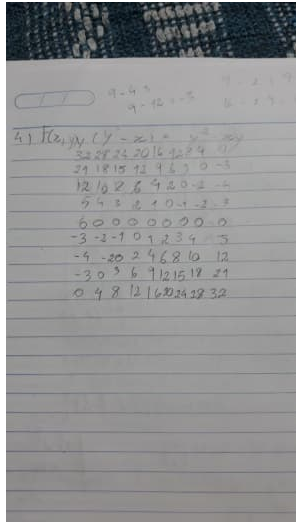 9-4.3
9-12=-3
4) F(x,y)=y(y-x)= y²-xy
32 28 24 20 16 12 8 4 0
21 18 15 12 9 6 3 0 -3
12 10 8 6 4 2 0 -2 -4
5 4 3 2 1 0 -1 -2 -3
0 0 0 0 0 0 0 0
-3 -2 -1 0 1 2 3 4 5
-4 -2 0 2 4 6 8 10 12
-3 0 3 6 9 12 15 18 21
0 4 8 12 16 20 24 28 32